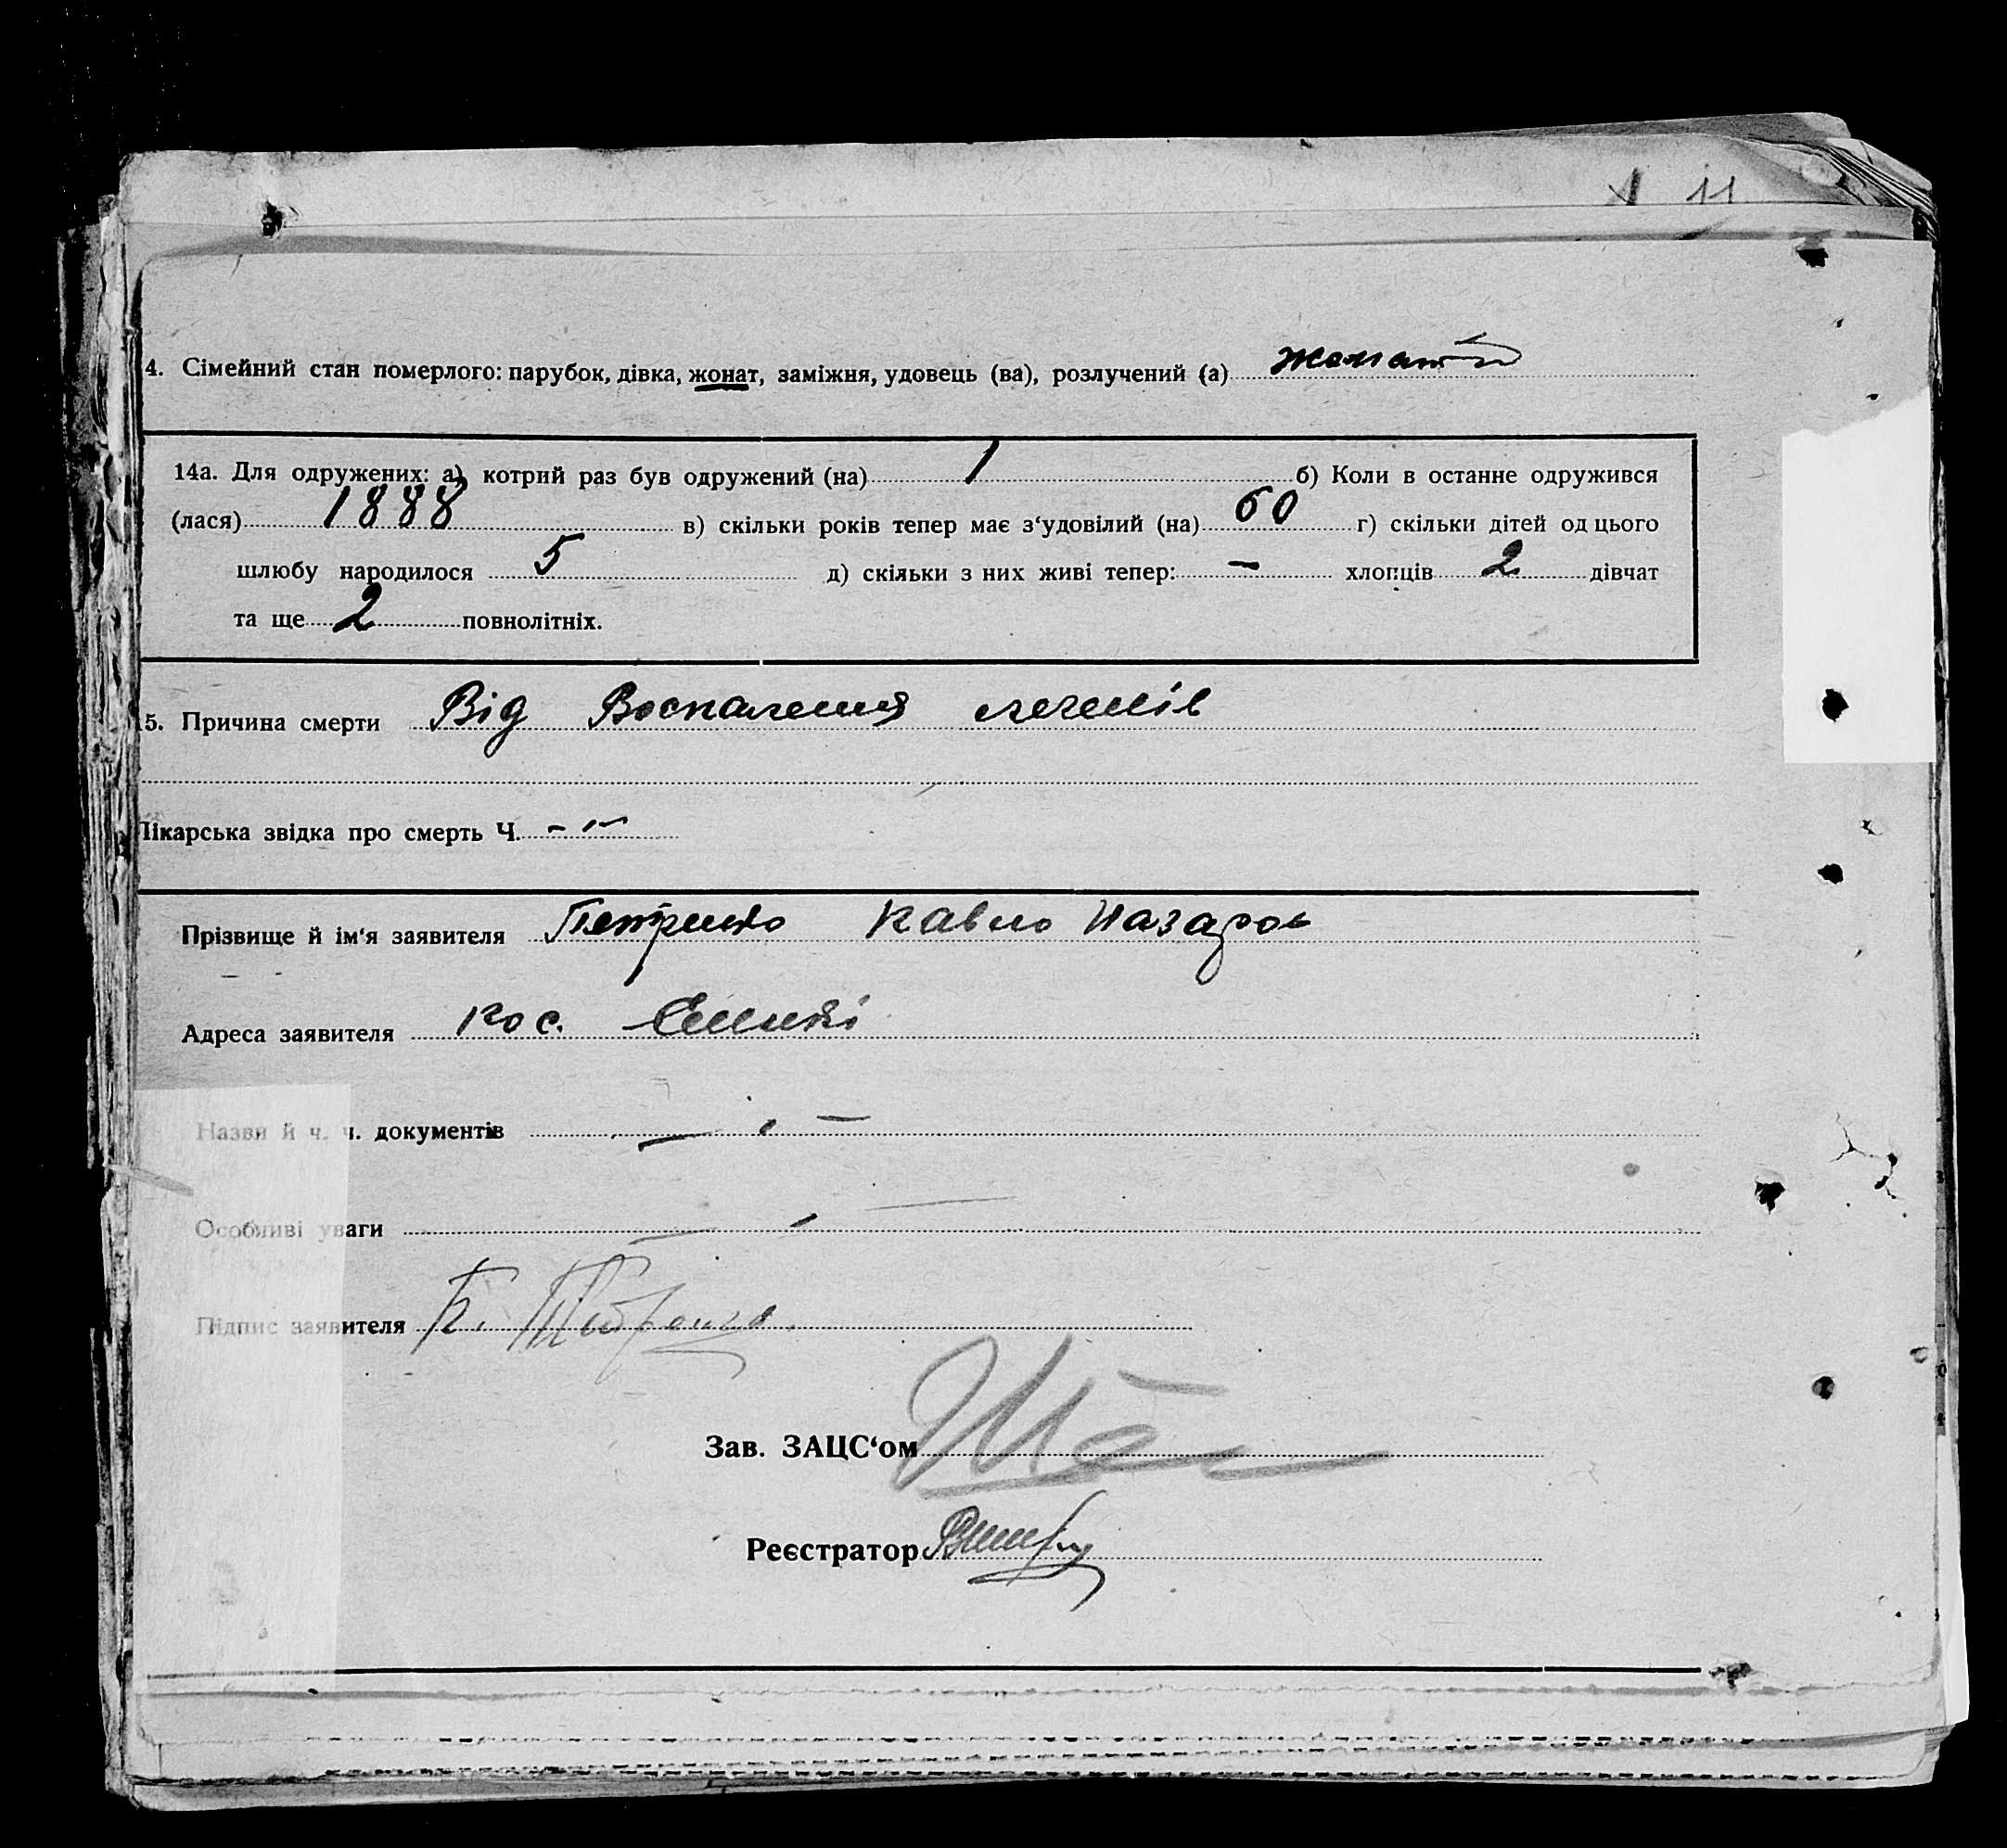 11
4. Сімейний стан померлого: парубок, дівка, жонат, заміжня, удовець (ва), розлучений (а) жонатий
14а. Для одружених: а) котрий раз був одружений (на) 1 б) Коли в останне одружився
(лася) 1888 в) скільки років тепер має з‘удовілий (на) 60 г) скільки дітей од цього
шлюбу народилося 5 д) скільки з них живі тепер: – хлопців 2 дівчат
та ще 2 повнолітніх.
5. Причина смерти Від Воспаления легенів
Лікарська звідка про смерть Ч. - -
Прізвище й ім‘я заявителя Петренко Павло Назаров
Адреса заявителя с.
Назви й ч. ч. документів — —
Особливі уваги — —
Підпис заявителя П. Петренко
Зав. ЗАЦС‘ом
Реєстратор